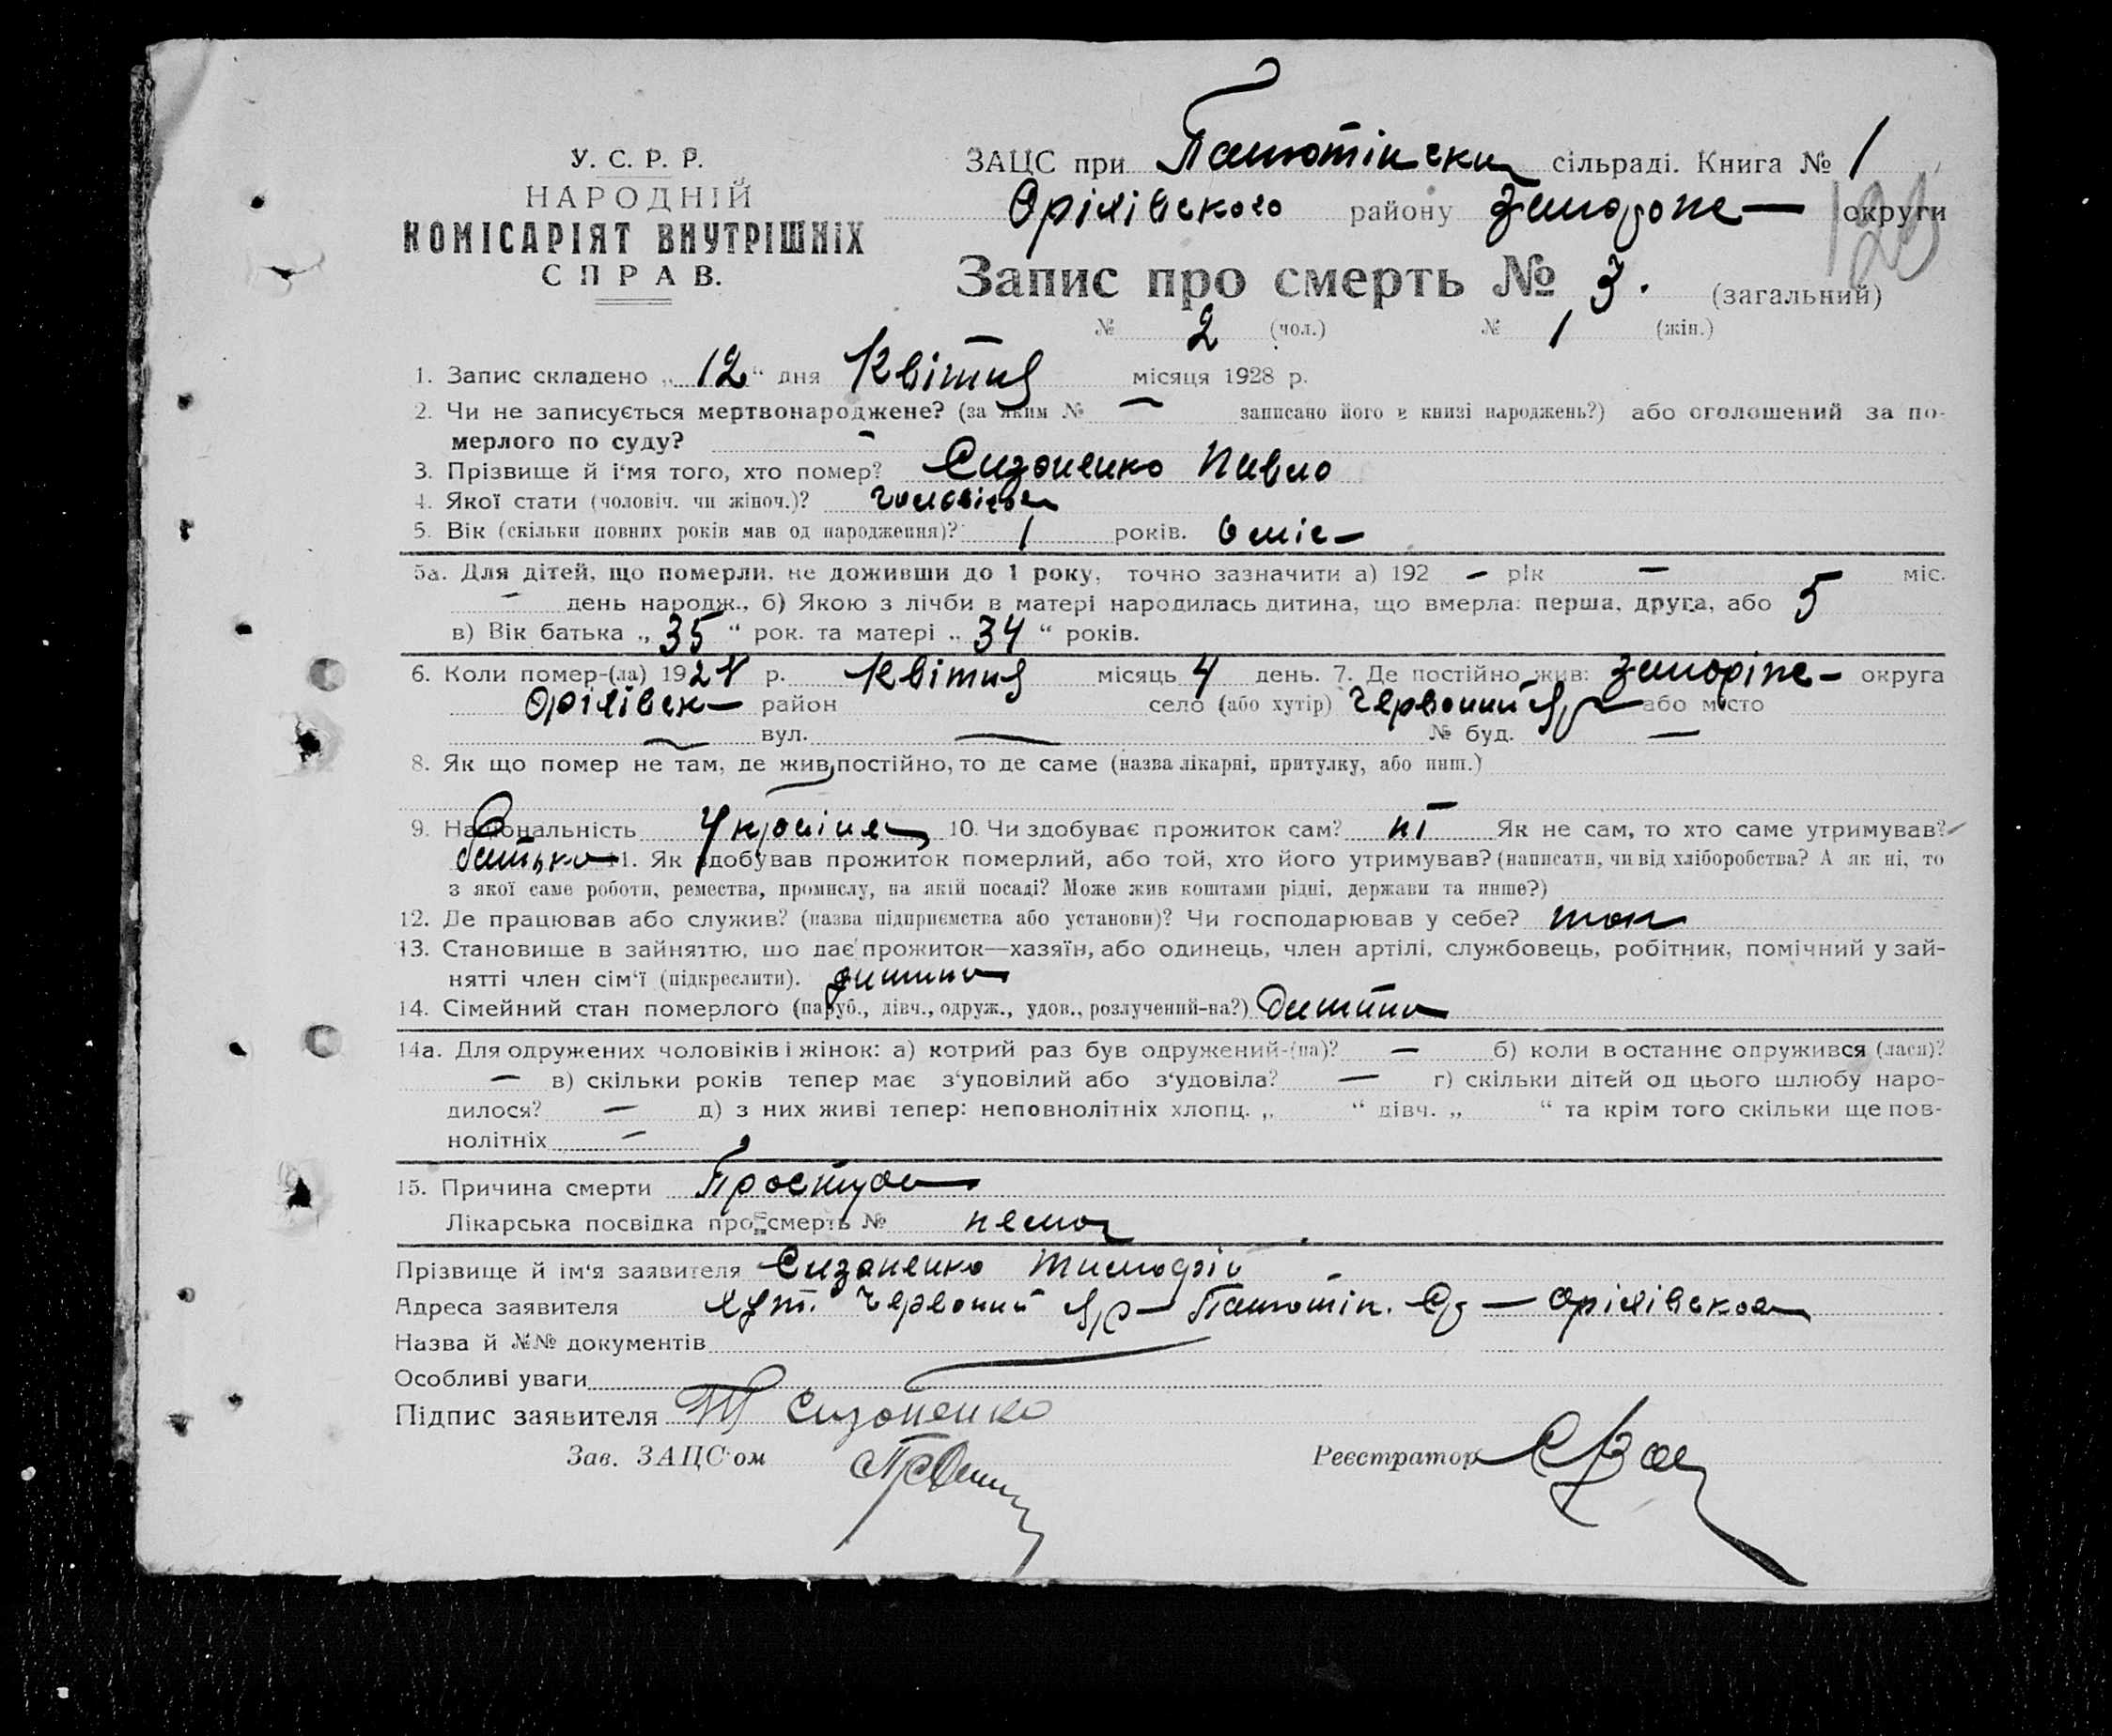 У. С. Р. Р.
НАРОДНІЙ
КОМІСАРІЯТ ВНУТРІШНІХ
СПРАВ.
ЗАЦС при сільраді. Книга № 1
Оріхівского району Запоріже— округи
Запис про смерть № 3. (загальний)
№ 2 (чол.) № 1 (жін.)
1. Запис складено „12“ дня Квітня місяця 1928 р.
2. Чи не записується мертвонароджене? (за яким № — записано його в книзі народжень?) або оголошений за по-
мерлого по суду? —
3. Прізвище й і'мя того, хто помер? Сизоненко Павло
4. Якої стати (чоловіч. чи жіноч.)?
5. Вік (скільки повних років мав од народження)? 1 років. 6 міс—
5а. Для дітей, що померли, не доживши до 1 року, точно зазначити а) 192 — рік — міс.
— день народж., б) Якою з лічби в матері народилась дитина, що вмерла: перша, друга, або 5
в) Вік батька „35“ рок. та матері „34“ років.
6. Коли помер-(ла) 1928 р. Квітня місяць 4 день. 7. Де постійно жив: Запоріже— округа
Оріхівск— район село (або хутір) Червоний Яр або місто
— вул. — № буд. —
8. Як що помер не там, де жив постійно, то де саме (назва лікарні, притулку, або инш.)
9. Національність Україне 10. Чи здобуває прожиток сам? ні Як не сам, то хто саме утримував?
батько 11. Як здобував прожиток померлий, або той, хто його утримував? (написати, чи від хліборобства? А як ні, то
з якої саме роботи, ремества, промислу, на якій посаді? Може жив коштами рідні, держави та инше?)
12. Де працював або служив? (назва підприємства або установи)? Чи господарював у себе? так
13. Становище в зайняттю, що дає прожиток—хазяїн, або одинець, член артілі, службовець, робітник, помічний у зай-
нятті член сім'ї (підкреслити). дитина
14. Сімейний стан померлого (паруб., дівч., одруж., удов., розлучений-на?) Дитина
14а. Для одружених чоловіків і жінок: а) котрий раз був одружений-(на)? — б) коли востаннє одружився (лася)?
— в) скільки років тепер має з'удовілий або з'удовіла? — г) скільки дітей од цього шлюбу наро-
дилося? — д) з них живі тепер: неповнолітніх хлопц. „ “ дівч. „ “ та крім того скільки ще пов-
нолітніх —
15. Причина смерти Простуда
Лікарська посвідка про смерть № нема
Прізвище й ім'я заявителя Сизоненко Тимофій
Адреса заявителя хут. Червоний Яр— — Оріхівского
Назва й №№ документів
Особливі уваги
Підпис заявителя Т Сизоненко
Зав. ЗАЦС'ом
Реєстратор